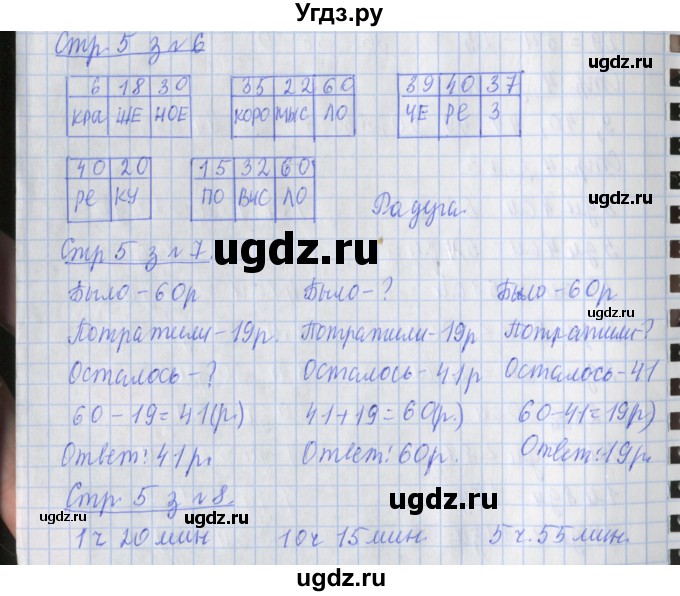 Угдз.ру
Стр 5 з №6
6 18 30 35 22 60 39 40 37
КРА ШЕ НОЕ КОРО МЫС ЛО ЧЕ РЕ З
40 20 15 32 60
РЕ КУ ПО ВИС ЛО
Радуга
ugdz.ru
ugdz.ru
Стр 5 з №7
Было-60р Было-? Было-60р
ugdz.ru
Потратили-19р. Потратили-19р Потратили-?
Осталось-? Осталось-41р Осталось-41
60-19=41(р.) 41+19=60(р.) 60-41=19р)
Ответ: 41р. Ответ: 60р. Ответ: 19р.
ugdz.ru
Стр 5 з №8.
ugdz.ru ugdz.ru
1ч 20мин 10ч 15мин. 5ч. 55мин.
ugdz.ru